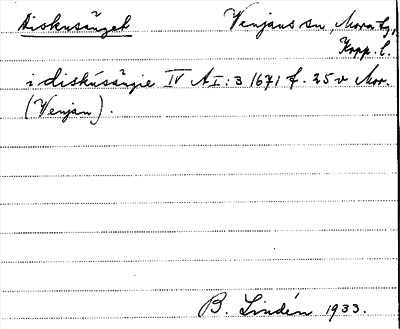 Diskusängel Venjans sn, Mora tg,
Kopp. l.
i diskúsängie IV A I: 3 1671 f. 25 v Mor.
(Venjan).
B. Lindén 1933.